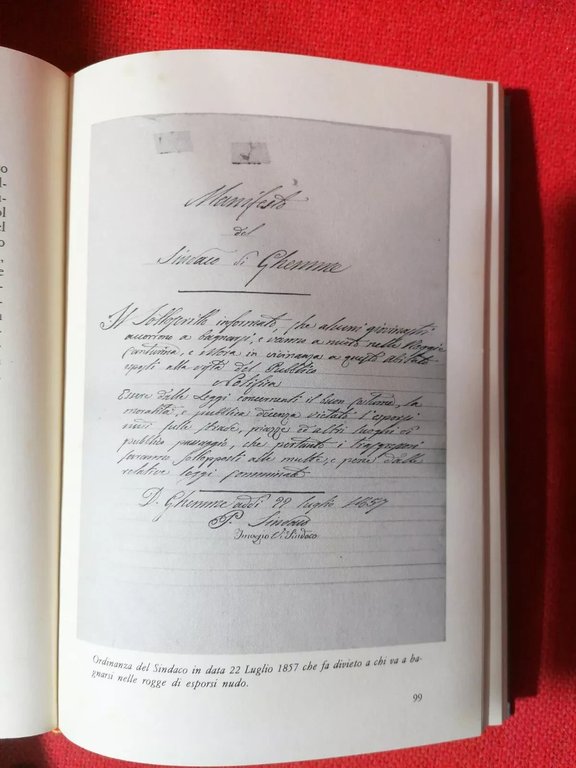 Manifesto
del
Sindaco di Ghemme
Il Sottoscritto informato, che alcuni giovinastri
accorrono a bagnarsi, e vanno a nuoto nelle Roggie
e talora in vicinanza a questo abitato
esposti alla vista del Pubblico
Notifica
Essere dalle Leggi concernenti il buon costume, la
moralità, e pubblica decenza vietato l'esporsi
nudi sulle strade, piazze ed altri luoghi di
pubblico passaggio, che pertanto i trasgressori
saranno sottoposti alle multe, e pene dalle
relative leggi comminate
D. Ghemme addì 22 luglio 1857
Sindaco
Ordinanza del Sindaco in data 22 Luglio 1857 che fa divieto a chi va a ba-
gnarsi nelle rogge di esporsi nudo.
99